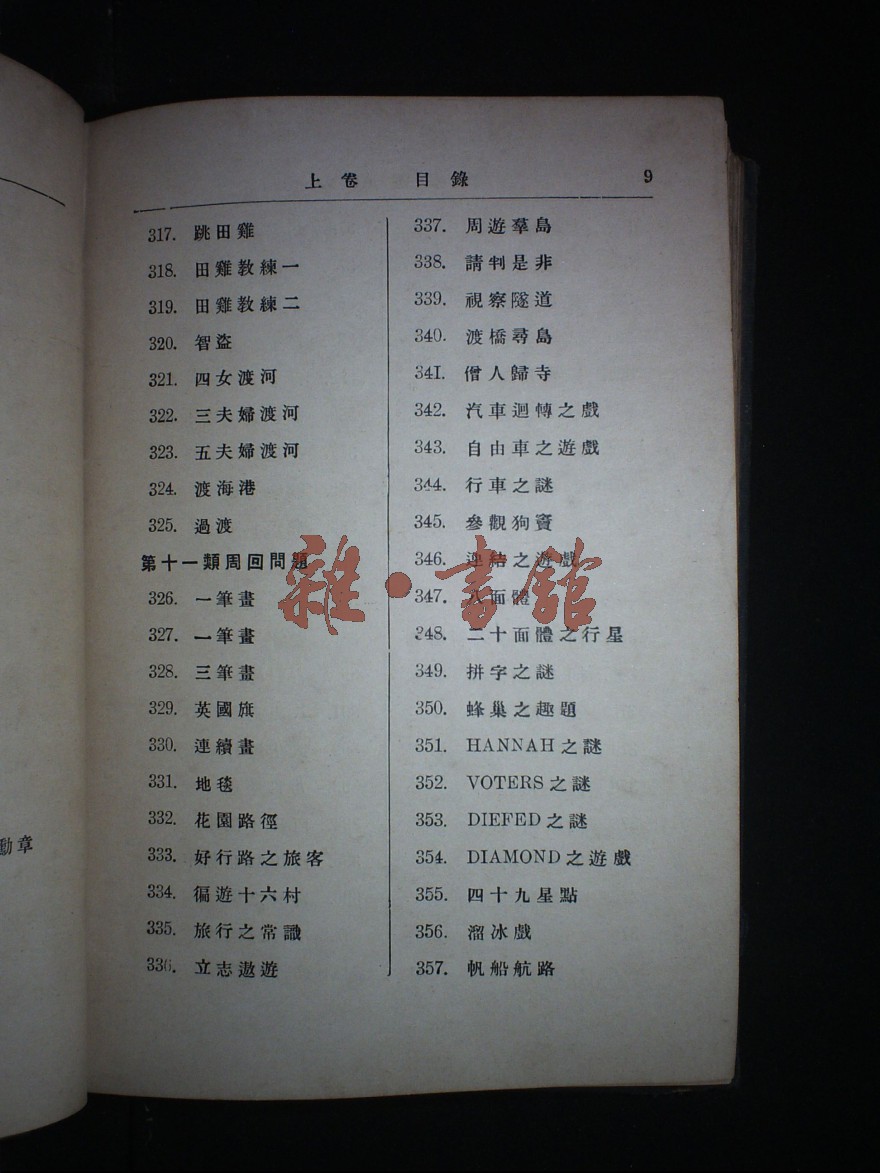 上卷 目錄 9
317. 跳田雞
318. 田雞教練一
319. 田雞教練二
320. 智盜
321. 四女渡河
322. 三夫婦渡河
323. 五夫婦渡河
324. 渡海港
325. 過渡
第十一類周回問題
326. 一筆畫
327. 一筆畫
328. 三筆畫
329. 英國旗
330. 連續畫
331. 地毯
332. 花園路徑
333. 好行路之旅客
334. 徧遊十六村
335. 旅行之常識
336. 立志遨遊
337. 周遊羣島
338. 請判是非
339. 視察隧道
340. 渡橋尋島
341. 僧人歸寺
342. 汽車迴轉之戲
343. 自由車之遊戲
344. 行車之謎
345. 參觀狗竇
346. 連結之遊戲
347. 八面體
348. 二十面體之行星
349. 拼字之謎
350. 蜂巢之趣題
351. HANNAH之謎
352. VOTERS之謎
353. DIEFED之謎
354. DIAMOND之遊戲
355. 四十九星點
356. 溜冰戲
357. 帆船航路
勳章
雜·書館